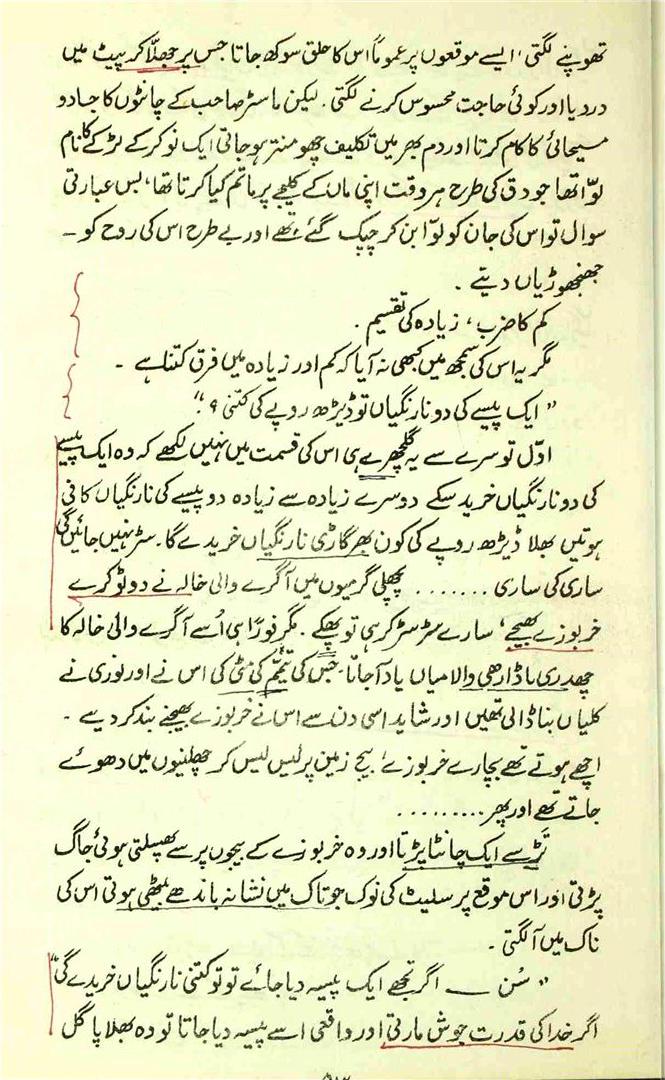 تھوپنے لگتی، ایسے موقعوں پر عموماً اس کا حلق سوکھ جاتا جس پر جھلّا کر پیٹ میں
درد یا اور کوئی حاجت محسوس کرنے لگتی۔ لیکن ماسٹر صاحب کے چانٹوں کا جادو
مسیحائی کا کام کرتا اور دم بھر میں تکلیف چھو منتر ہو جاتی ایک نوکر کے لڑکے کا نام
لوّا تھا جو دق کی طرح ہر وقت اپنی ماں کے کلیجے پر ماتم کیا کرتا تھا، بس عبارتی
سوال تو اس کی جان کو لوّا بن کر چپک گئے تھے اور بے طرح اس کی روح کو ـ
جھنجھوڑیاں دیتے۔
کم کا ضرب، زیادہ کی تقسیم۔
مگر یہ اس کی سمجھ میں کبھی نہ آیا کہ کم اور زیادہ میں فرق کتنا ہے۔
”ایک پیسے کی دو نارنگیاں تو ڈیڑھ روپے کی کتنی؟“
اوّل تو سرے سے یہ گلچھرے ہی اس کی قسمت میں نہیں لکھے کہ وہ ایک پیسے
کی دو نارنگیاں خرید سکے دوسرے زیادہ سے زیادہ دو پیسے کی نارنگیاں کافی
ہوتیں بھلا ڈیڑھ روپے کی کون بھر گاڑی نارنگیاں خریدے گا۔ سڑ نہیں جائیں گی
ساری کی ساری ....... پچھلی گرمیوں میں آگرے والی خالہ نے دو ٹوکرے
خربوزے بھیجے، سارے سڑ سڑ کر ہی تو پھکے۔ مگر فوراً ہی اُسے آگرے والی خالہ کا
چھدری ڈاڑھی والا میاں یاد آ جاتا۔ جس کی تیمّم کی مٹی کی اس نے اور نوری نے
کلیاں بنا ڈالی تھیں اور شاید اسی دن سے اس نے خربوزے بھیجنے بند کر دیے۔
اچھے ہوتے تھے بچارے خربوزے، بیج زمین پر لیس لیس کر چھلنیوں میں دھوئے
جاتے تھے اور پھر .........
تَڑ سے ایک چانٹا پڑتا اور وہ خربوزے کے بیجوں پر سے پھسلتی ہوئی جاگ
پڑتی اور اس موقع پر سلیٹ کی نوک جو تاک میں نشانہ باندھے بیٹھی ہوتی اس کی
ناک میں آ لگتی۔
”سُن — اگر تجھے ایک پیسہ دیا جائے تو تو کتنی نارنگیاں خریدے گی“
اگر خدا کی قدرت جوش مارتی اور واقعی اسے پیسہ دیا جاتا تو وہ بھلا پاگل